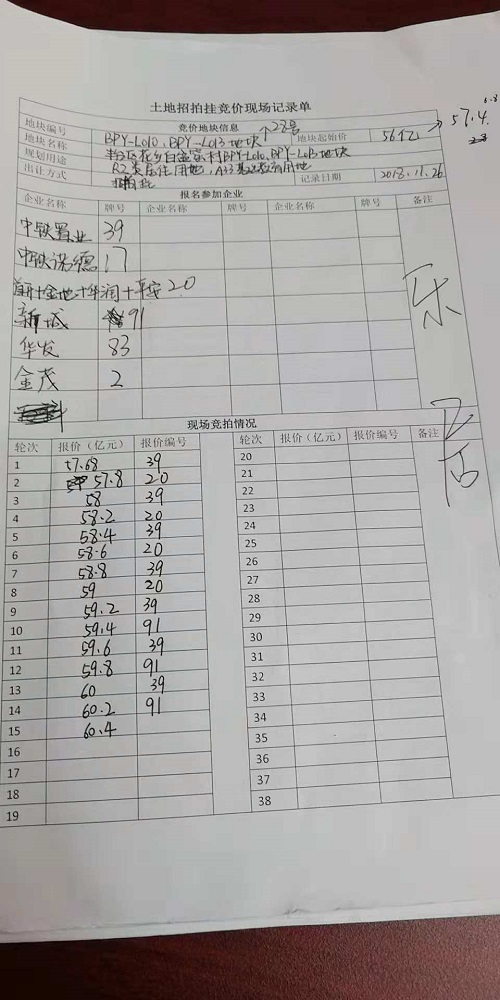 土地招拍挂竞价现场记录单
地块编号 竞价地块信息 28号
地块名称 BPY-L010、BPY-L013地块 地块起始价 56亿 → 57.4
规划用途 BPY-L010、BPY-L013地块
R2类居住用地、A33基础教育用地
出让方式 记录日期 2018.11.26
报名参加企业
企业名称 牌号 企业名称 牌号 企业名称 牌号 备注
中铁置业 39
中铁诺德 17
首开+金地+华润+平安 20
新城 91
华发 83
金茂 2
现场竞拍情况
轮次 报价（亿元） 报价编号 轮次 报价（亿元） 报价编号 备注
1 57.68 39 20
2 57.8 20 21
3 58 39 22
4 58.2 20 23
5 58.4 39 24
6 58.6 20 25
7 58.8 39 26
8 59 20 27
9 59.2 39 28
10 59.4 91 29
11 59.6 39 30
12 59.8 91 31
13 60 39 32
14 60.2 91 33
15 60.4 34
16 35
17 36
18 37
19 38
乐
居